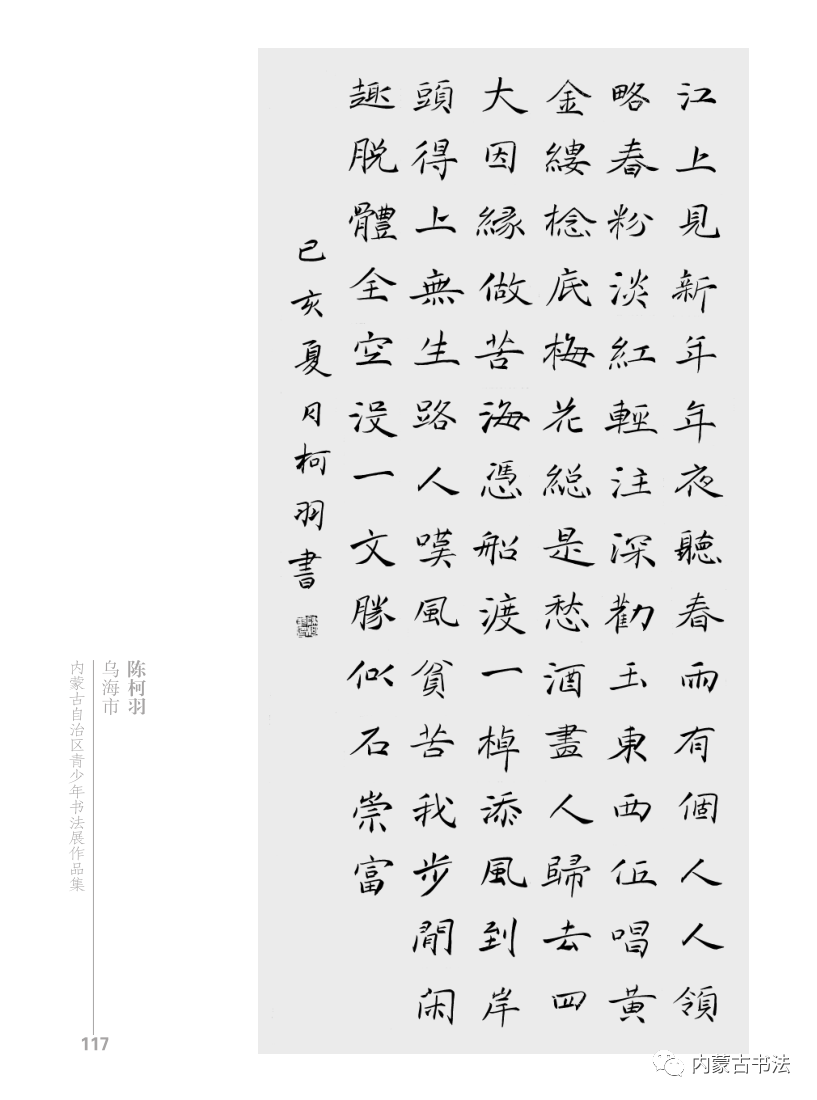 江上見新年年夜聽春雨有個人人領
略春粉淡紅輕注深勸玉東西伍唱黃
金縷棯底梅花総是愁酒盡人歸去四
大因緣做苦海憑船渡一棹添風到岸
頭得上無生路人嘆風貧苦我步閒闲
趣脱體全空没一文勝似石崇富
已亥夏月柯羽書
陈柯羽
乌海市
内蒙古自治区青少年书法展作品集
117
内蒙古书法